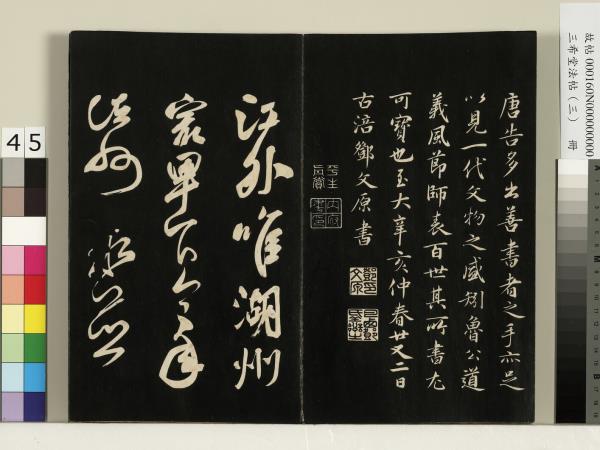 故帖 000160N000000000
三希堂法帖（三） 冊
唐告多出善書者之手亦足
以見一代文物之盛矧魯公道
義風節師表百世其所書尤
可寶也至大辛亥仲春廿又二日
古涪鄧文原書
江外唯湖州
最卑下今年
諸州水並
4 5